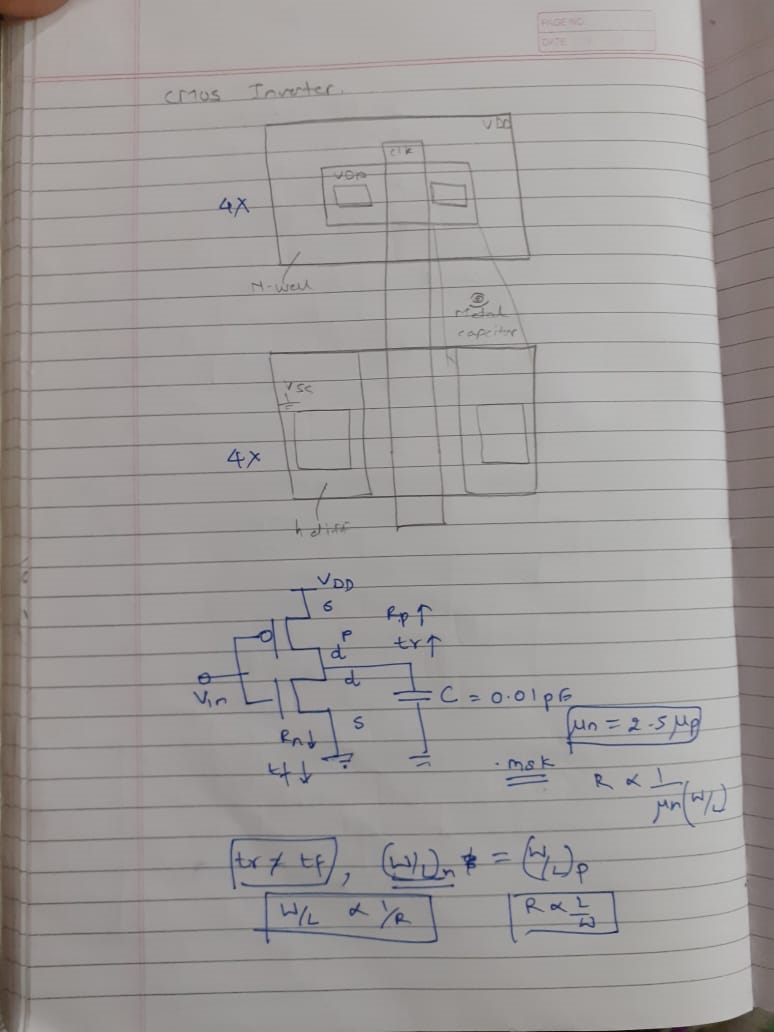 PAGE NO
DATE
CMOS Inverter.
VDD
clk
VDD
4X
N-well
Metal
VSC
4X
VDD
s
Rp↑
p
tr↑
d
d
Vin
C = 0.01pF
s
μn = 2.5 μp
Rn↓
tf ↓
.msk
R ∝ 1/μn(W/L)
tr ≠ tf, (W/L)n = (W/L)p
W/L ∝ 1/R
R ∝ L/W